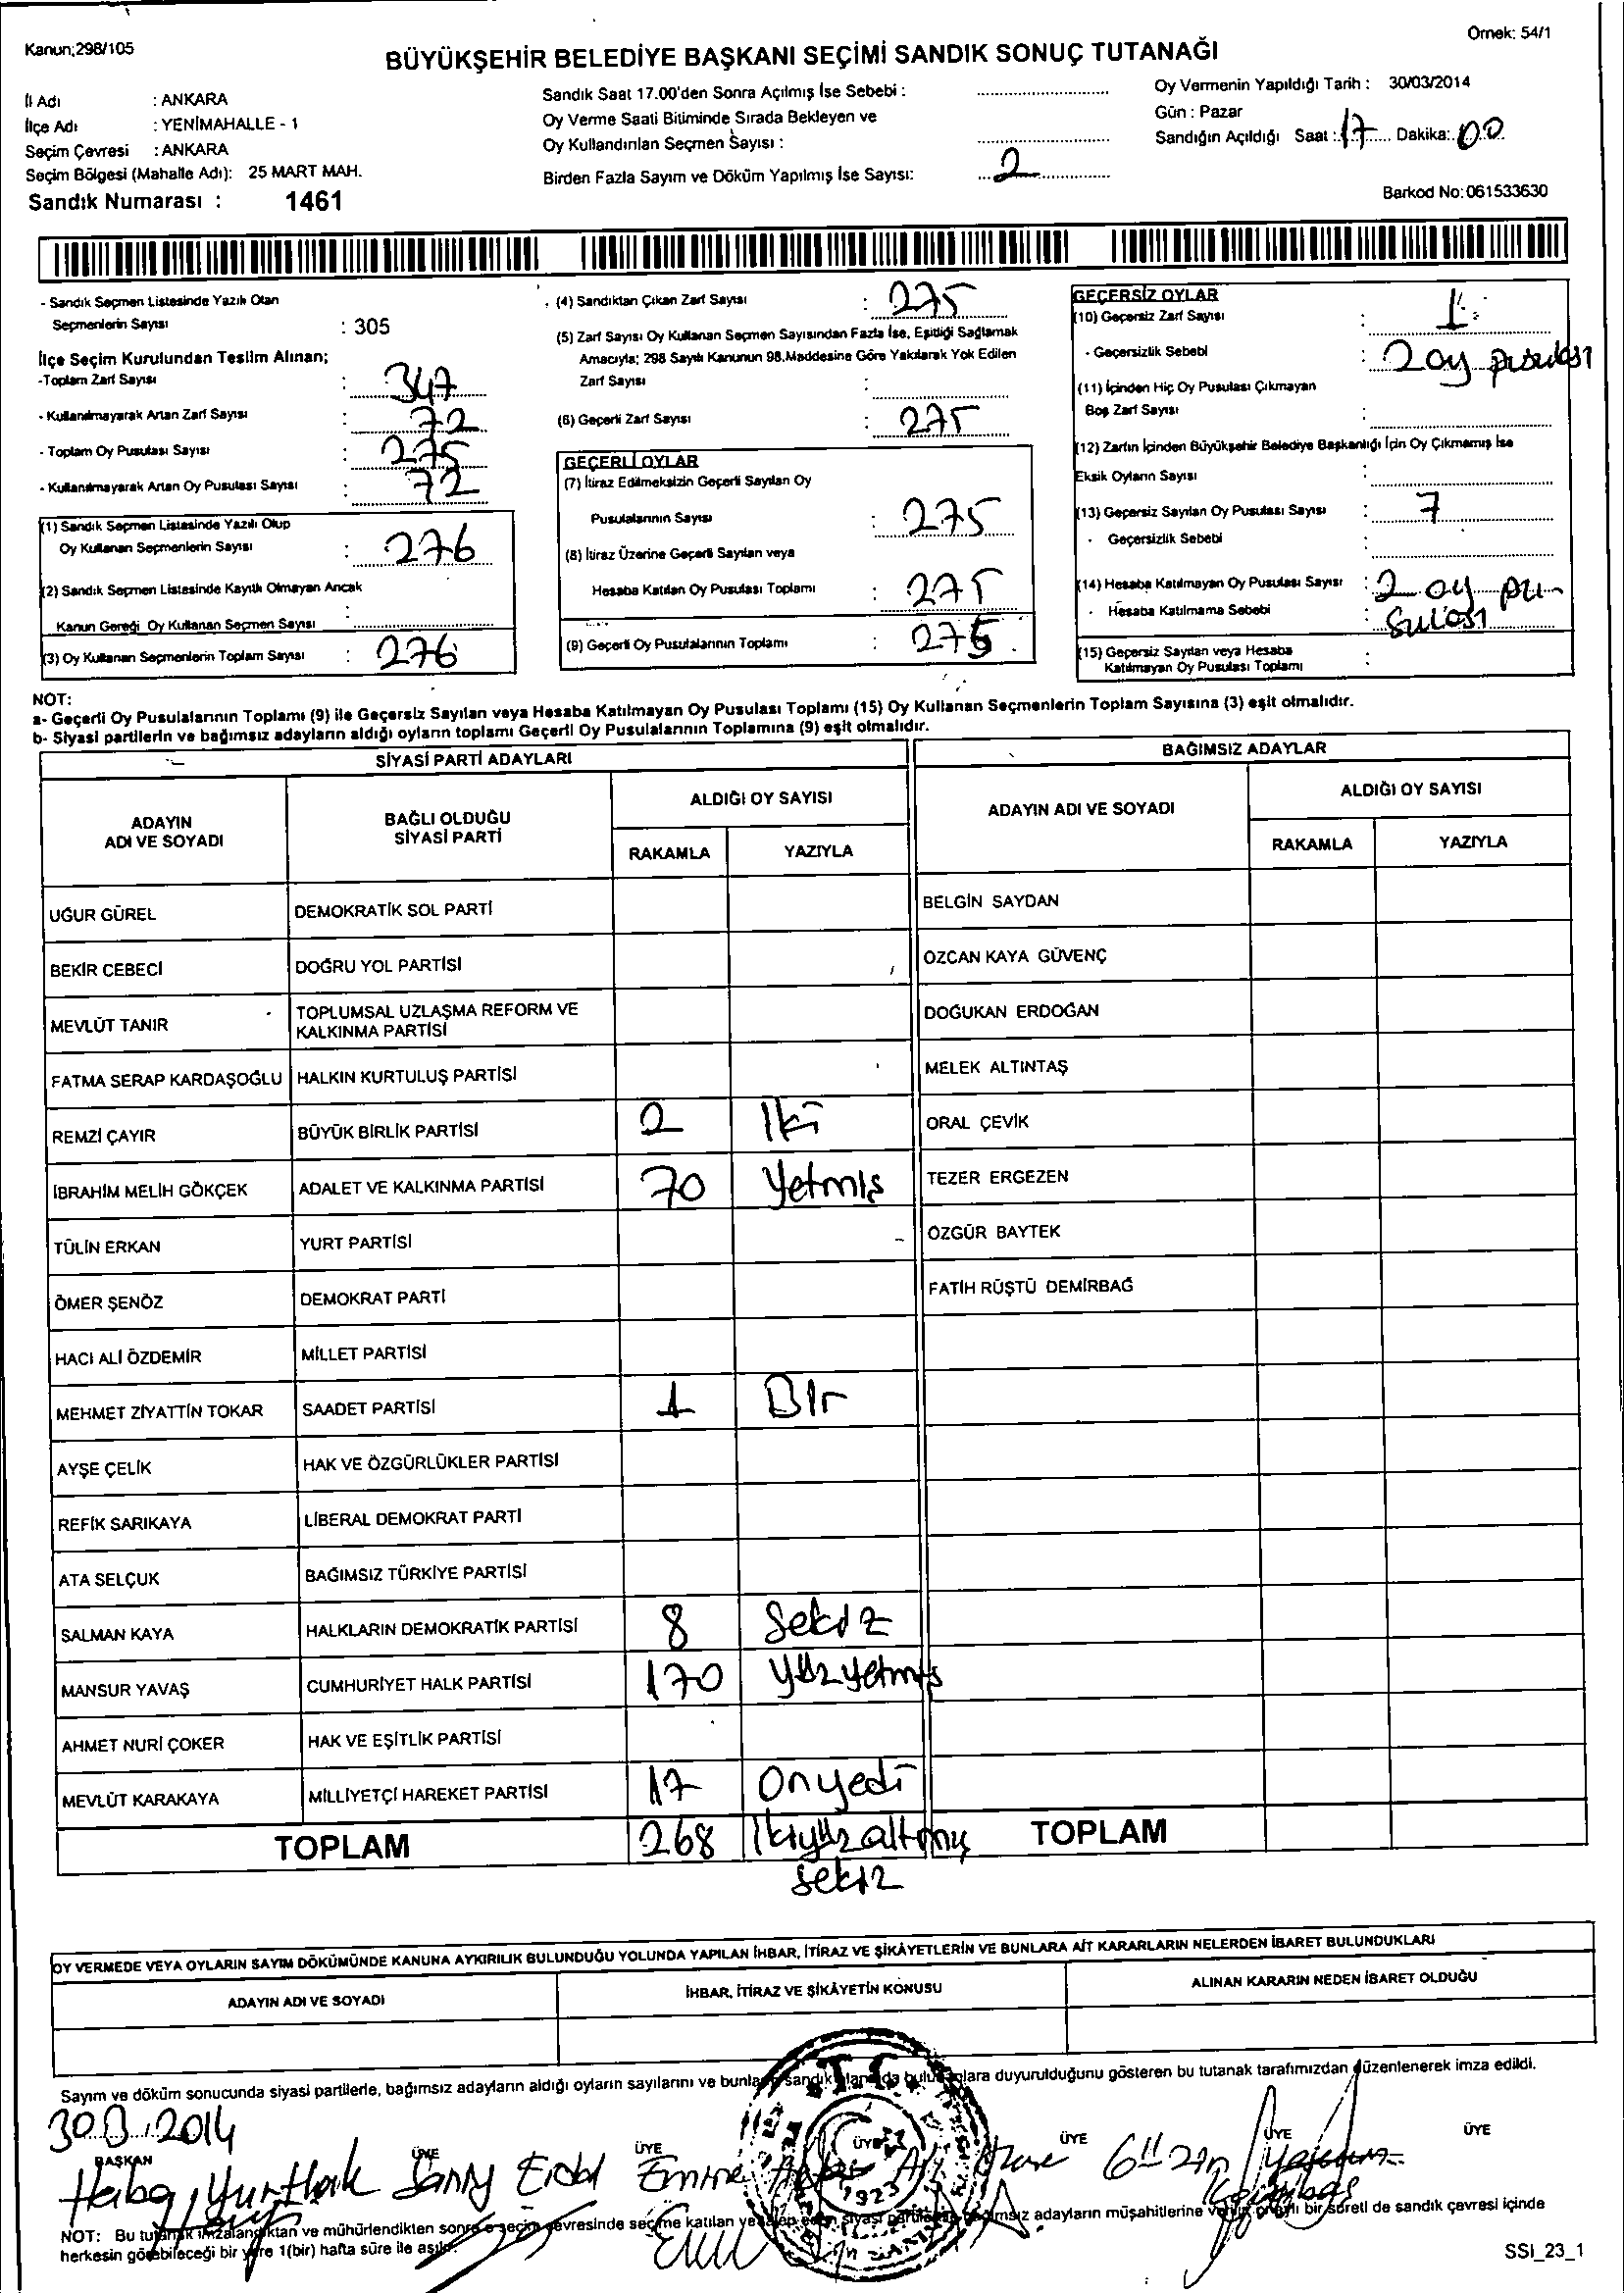 Kanun;298/105
Örnek: 54/1
BÜYÜKŞEHİR BELEDİYE BAŞKANI SEÇİMİ SANDIK SONUÇ TUTANAĞI
İl Adı : ANKARA
İlçe Adı : YENİMAHALLE - 1
Seçim Çevresi : ANKARA
Seçim Bölgesi (Mahalle Adı): 25 MART MAH.
Sandık Numarası : 1461
Sandık Saat 17.00'den Sonra Açılmış İse Sebebi :
Oy Verme Saati Bitiminde Sırada Bekleyen ve
Oy Kullandırılan Seçmen Sayısı :
Birden Fazla Sayım ve Döküm Yapılmış İse Sayısı: 2
Oy Vermenin Yapıldığı Tarih : 30/03/2014
Gün : Pazar
Sandığın Açıldığı Saat : 17 Dakika: 00
Barkod No: 061533630
- Sandık Seçmen Listesinde Yazılı Olan
Seçmenlerin Sayısı : 305
İlçe Seçim Kurulundan Teslim Alınan;
-Toplam Zarf Sayısı : 347
- Kullanılmayarak Artan Zarf Sayısı : 72
- Toplam Oy Pusulası Sayısı : 275
- Kullanılmayarak Artan Oy Pusulası Sayısı : 72
(1) Sandık Seçmen Listesinde Yazılı Olup
Oy Kullanan Seçmenlerin Sayısı : 276
(2) Sandık Seçmen Listesinde Kayıtlı Olmayan Ancak
Kanun Gereği Oy Kullanan Seçmen Sayısı :
(3) Oy Kullanan Seçmenlerin Toplam Sayısı : 276
(4) Sandıktan Çıkan Zarf Sayısı : 275
(5) Zarf Sayısı Oy Kullanan Seçmen Sayısından Fazla İse, Eşitliği Sağlamak
Amacıyla; 298 Sayılı Kanunun 98.Maddesine Göre Yakılarak Yok Edilen
Zarf Sayısı :
(6) Geçerli Zarf Sayısı : 275
GEÇERLİ OYLAR
(7) İtiraz Edilmeksizin Geçerli Sayılan Oy
Pusulalarının Sayısı : 275
(8) İtiraz Üzerine Geçerli Sayılan veya
Hesaba Katılan Oy Pusulası Toplamı : 275
(9) Geçerli Oy Pusulalarının Toplamı : 275
GEÇERSİZ OYLAR
(10) Geçersiz Zarf Sayısı : 1
- Geçersizlik Sebebi : 2 oy pusulası
(11) İçinden Hiç Oy Pusulası Çıkmayan
Boş Zarf Sayısı :
(12) Zarfın İçinden Büyükşehir Belediye Başkanlığı İçin Oy Çıkmamış İse
Eksik Oyların Sayısı :
(13) Geçersiz Sayılan Oy Pusulası Sayısı : 7
- Geçersizlik Sebebi :
(14) Hesaba Katılmayan Oy Pusulası Sayısı : 2 oy pu-
- Hesaba Katılmama Sebebi : sulası
(15) Geçersiz Sayılan veya Hesaba
Katılmayan Oy Pusulası Toplamı :
NOT:
a- Geçerli Oy Pusulalarının Toplamı (9) ile Geçersiz Sayılan veya Hesaba Katılmayan Oy Pusulası Toplamı (15) Oy Kullanan Seçmenlerin Toplam Sayısına (3) eşit olmalıdır.
b- Siyasi partilerin ve bağımsız adayların aldığı oyların toplamı Geçerli Oy Pusulalarının Toplamına (9) eşit olmalıdır.
SİYASİ PARTİ ADAYLARI
BAĞIMSIZ ADAYLAR
ADAYIN
ADI VE SOYADI
BAĞLI OLDUĞU
SİYASİ PARTİ
ALDIĞI OY SAYISI
RAKAMLA YAZIYLA
ADAYIN ADI VE SOYADI
ALDIĞI OY SAYISI
RAKAMLA YAZIYLA
UĞUR GÜREL DEMOKRATİK SOL PARTİ BELGİN SAYDAN
BEKİR CEBECİ DOĞRU YOL PARTİSİ ÖZCAN KAYA GÜVENÇ
MEVLÜT TANIR TOPLUMSAL UZLAŞMA REFORM VE
KALKINMA PARTİSİ DOĞUKAN ERDOĞAN
FATMA SERAP KARDAŞOĞLU HALKIN KURTULUŞ PARTİSİ MELEK ALTINTAŞ
REMZİ ÇAYIR BÜYÜK BİRLİK PARTİSİ 2 İki ORAL ÇEVİK
İBRAHİM MELİH GÖKÇEK ADALET VE KALKINMA PARTİSİ 70 Yetmiş TEZER ERGEZEN
TÜLİN ERKAN YURT PARTİSİ ÖZGÜR BAYTEK
ÖMER ŞENÖZ DEMOKRAT PARTİ FATİH RÜŞTÜ DEMİRBAĞ
HACI ALİ ÖZDEMİR MİLLET PARTİSİ
MEHMET ZİYATTİN TOKAR SAADET PARTİSİ 1 Bir
AYŞE ÇELİK HAK VE ÖZGÜRLÜKLER PARTİSİ
REFİK SARIKAYA LİBERAL DEMOKRAT PARTİ
ATA SELÇUK BAĞIMSIZ TÜRKİYE PARTİSİ
SALMAN KAYA HALKLARIN DEMOKRATİK PARTİSİ 8 Sekiz
MANSUR YAVAŞ CUMHURİYET HALK PARTİSİ 170 yüzyetmiş
AHMET NURİ ÇOKER HAK VE EŞİTLİK PARTİSİ
MEVLÜT KARAKAYA MİLLİYETÇİ HAREKET PARTİSİ 17 Onyedi
TOPLAM 268 İkiyüzaltmış TOPLAM
sekiz
OY VERMEDE VEYA OYLARIN SAYIM DÖKÜMÜNDE KANUNA AYKIRILIK BULUNDUĞU YOLUNDA YAPILAN İHBAR, İTİRAZ VE ŞİKÂYETLERİN VE BUNLARA AİT KARARLARIN NELERDEN İBARET BULUNDUKLARI
ADAYIN ADI VE SOYADI İHBAR, İTİRAZ VE ŞİKÂYETİN KONUSU ALINAN KARARIN NEDEN İBARET OLDUĞU
Sayım ve döküm sonucunda siyasi partilerle, bağımsız adayların aldığı oyların sayılarını ve bunların sandık alanında bulunanlara duyurulduğunu gösteren bu tutanak tarafımızdan düzenlenerek imza edildi.
T.C.
1923
BAŞKAN ÜYE ÜYE ÜYE ÜYE ÜYE ÜYE
Emine
NOT: Bu tutanak imzalandıktan ve mühürlendikten sonra o seçim çevresinde seçime katılan ve talep eden siyasi partilerle bağımsız adayların müşahitlerine verilir, onaylı bir sureti de sandık çevresi içinde
herkesin görebileceği bir yere 1(bir) hafta süre ile asılır.
SSI_23_1